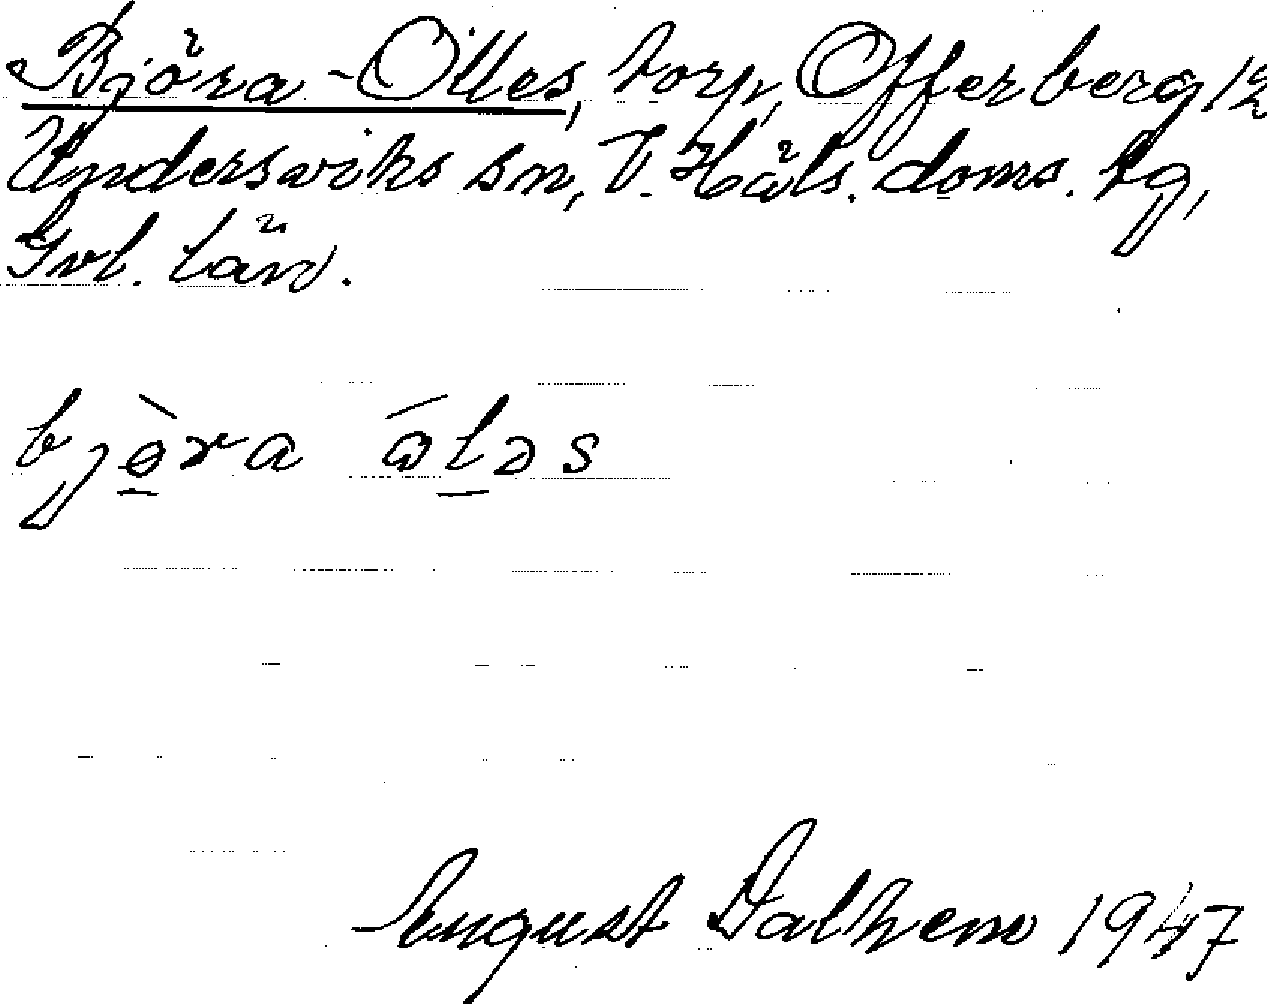 Björa-Olles, torp, Offerberg 12
Undersviks sn, V. Häls. doms. tg,
Gvl. län.
björa ɷlǝs
August Dalhem 1947